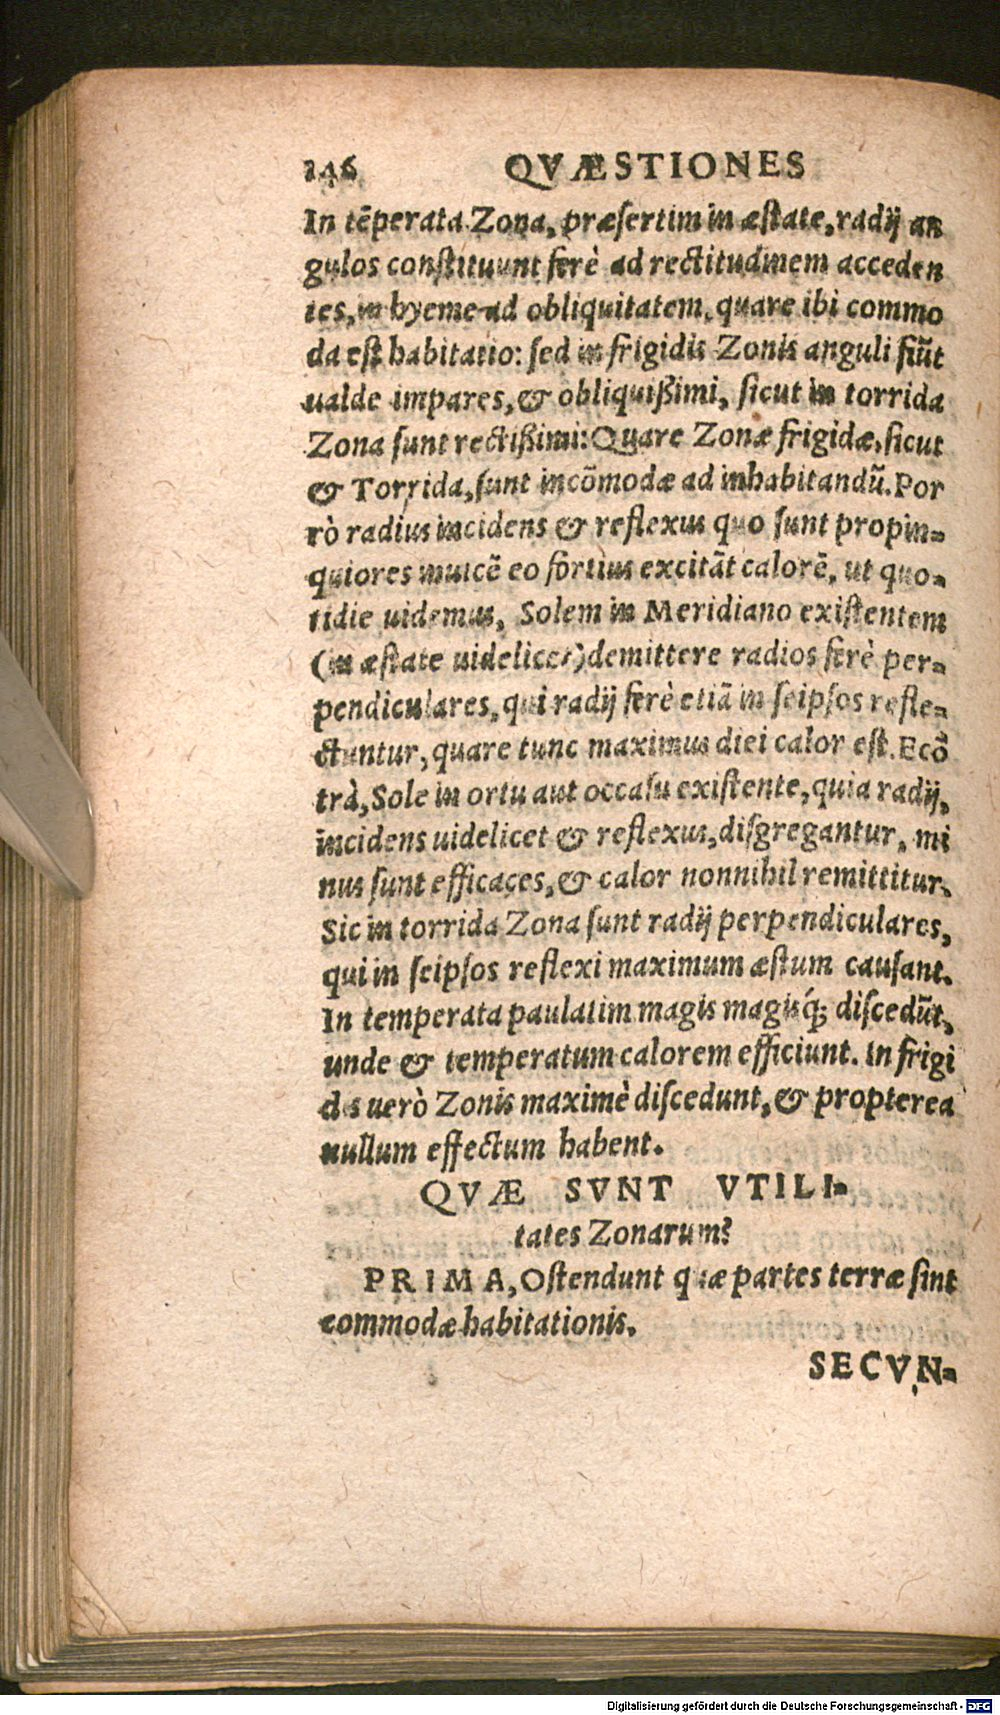 146 QVÆSTIONES
In tẽperata Zona, præſertim in æſtate, radij an
gulos conſtituunt ferè ad rectitudinem acceden
tes, in hyeme ad obliquitatem, quare ibi commo
da eſt habitatio: ſed in frigidis Zonis anguli fiũt
ualde impares, & obliquiſsimi, ſicut in torrida
Zona ſunt rectiſsimi: Quare Zonæ frigidæ, ſicut
& Torrida, ſunt incõmodæ ad inhabitandũ. Por
rò radius incidens & reflexus quo ſunt propin-
quiores inuicẽ eo fortius excitãt calorẽ, ut quo-
tidie uidemus, Solem in Meridiano exiſtentem
(in æſtate uidelicet) demittere radios ferè per-
pendiculares, qui radij ferè etiã in ſeipſos refle-
ctuntur, quare tunc maximus diei calor eſt. Ecõ
trà, Sole in ortu aut occaſu exiſtente, quia radij,
incidens uidelicet & reflexus, diſgregantur, mi
nus ſunt efficaces, & calor nonnihil remittitur.
Sic in torrida Zona ſunt radij perpendiculares,
qui in ſeipſos reflexi maximum æſtum cauſant.
In temperata paulatim magis magisq́; diſcedũt,
unde & temperatum calorem efficiunt. In frigi
dis uerò Zonis maximè diſcedunt, & propterea
nullum effectum habent.
QVÆ SVNT VTILI-
tates Zonarum?
PRIMA, Oſtendunt quæ partes terræ ſint
commodæ habitationis.
SECVN-
Digitalisierung gefördert durch die Deutsche Forschungsgemeinschaft - DFG